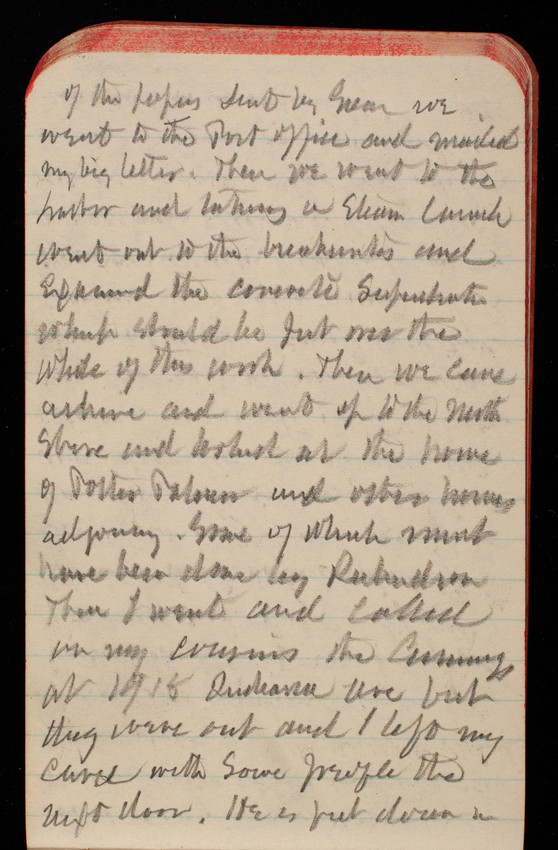 of the papers sent by Greer we
went to the Post office and mailed
my big letter. Then we went to the
harbor and taking a Steam launch
went out to the breakwater and
Examined the concrete Superstructure
which should be put over the
whole of this work. Then we came
ashore and went up to the North
Shore and looked at the home
of Potter Palmer and other homes
adjoining. Some of which must
have been done by Richardson
Then I went and called
on my cousins the Cummings
at 1918 Indiana Ave but
they were out and I left my
card with some people the
next door. He is put down in